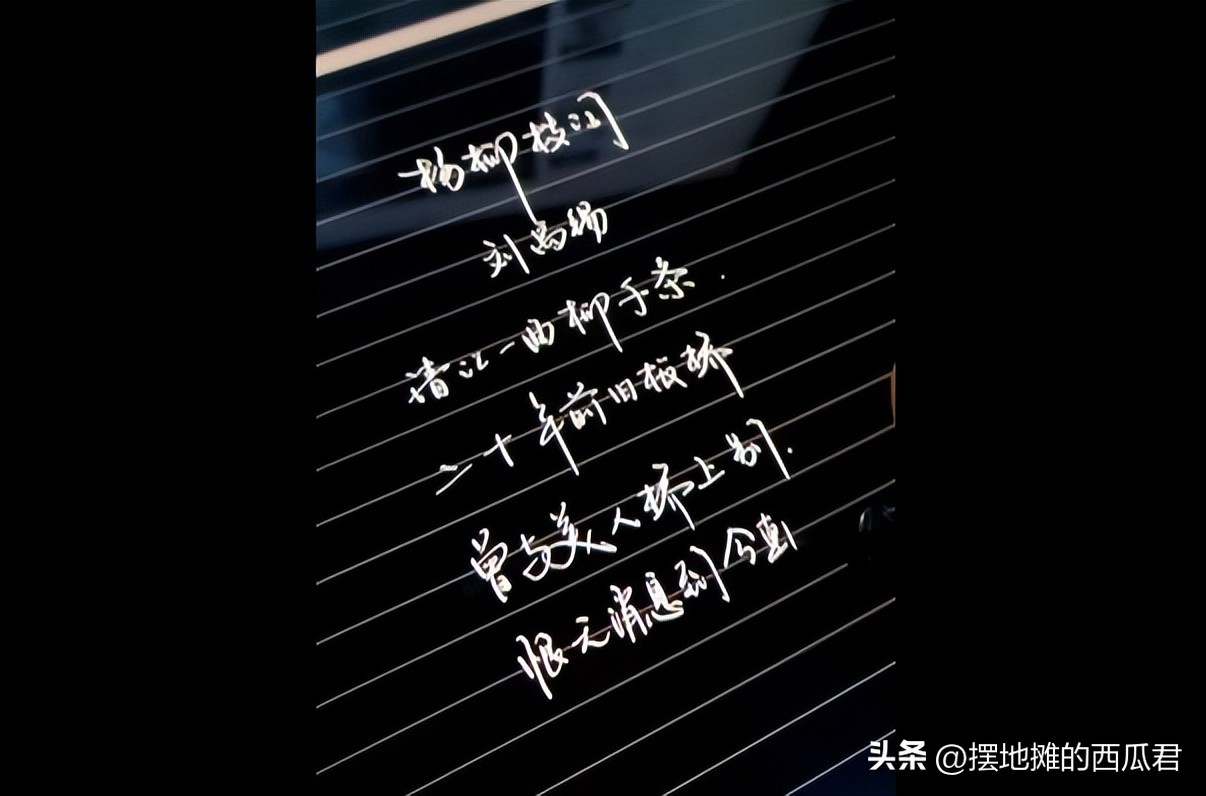 杨柳枝词
刘禹锡
清江一曲柳千条.
二十年前旧板桥
曾与美人桥上别.
恨无消息到今朝
头条 @摆地摊的西瓜君